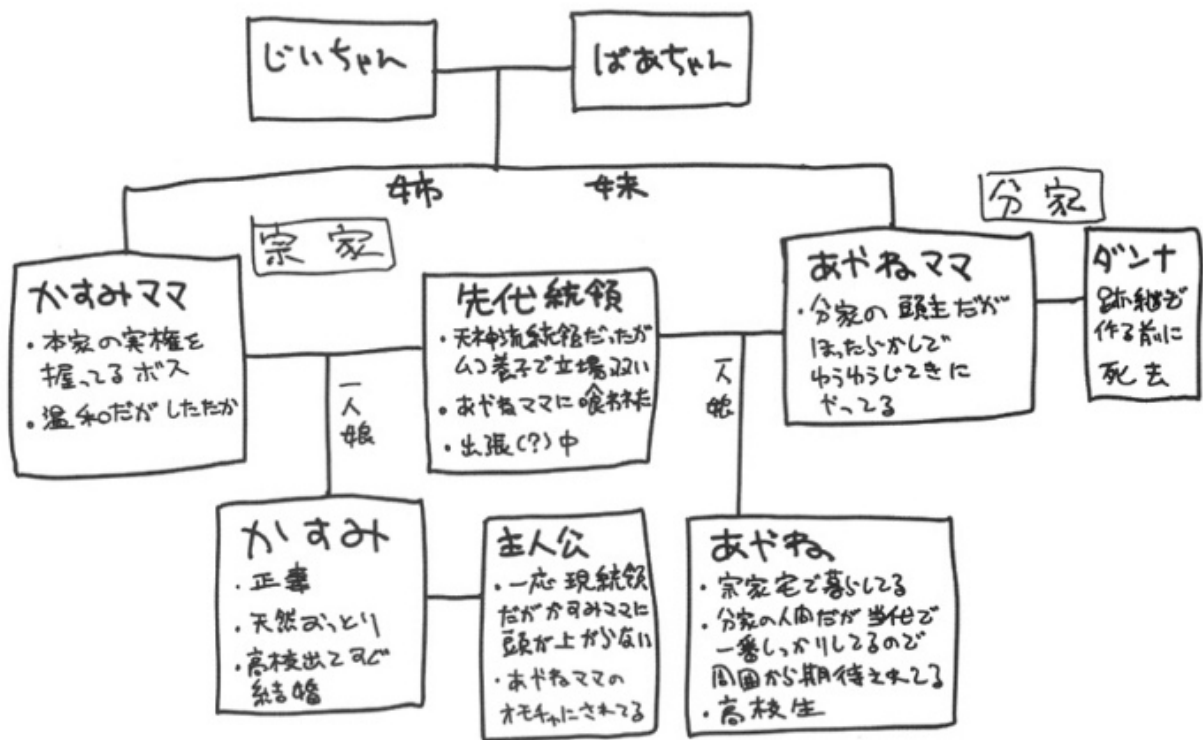 じいちゃん
ばあちゃん
姉
妹
宗家
分家
かすみママ
・本家の実権を
握ってるボス
・温和だがしたたか
先代統領
・天神流統領だったが
ムコ養子で立場弱い
・あやねママに喰われた
・出張(?)中
あやねママ
・分家の頭主だが
ほったらかしで
ゆうゆうじてきに
やってる
ダンナ
跡継ぎ
作る前に
死去
一人娘
一人娘
かすみ
・正妻
・天然おっとり
・高校出てすぐ
結婚
主人公
・一応現統領
だがかすみママに
頭が上がらない
・あやねママの
オモチャにされてる
あやね
・宗家宅で暮らしてる
・分家の人間だが当代で
一番しっかりしてるので
周囲から期待されてる
・高校生